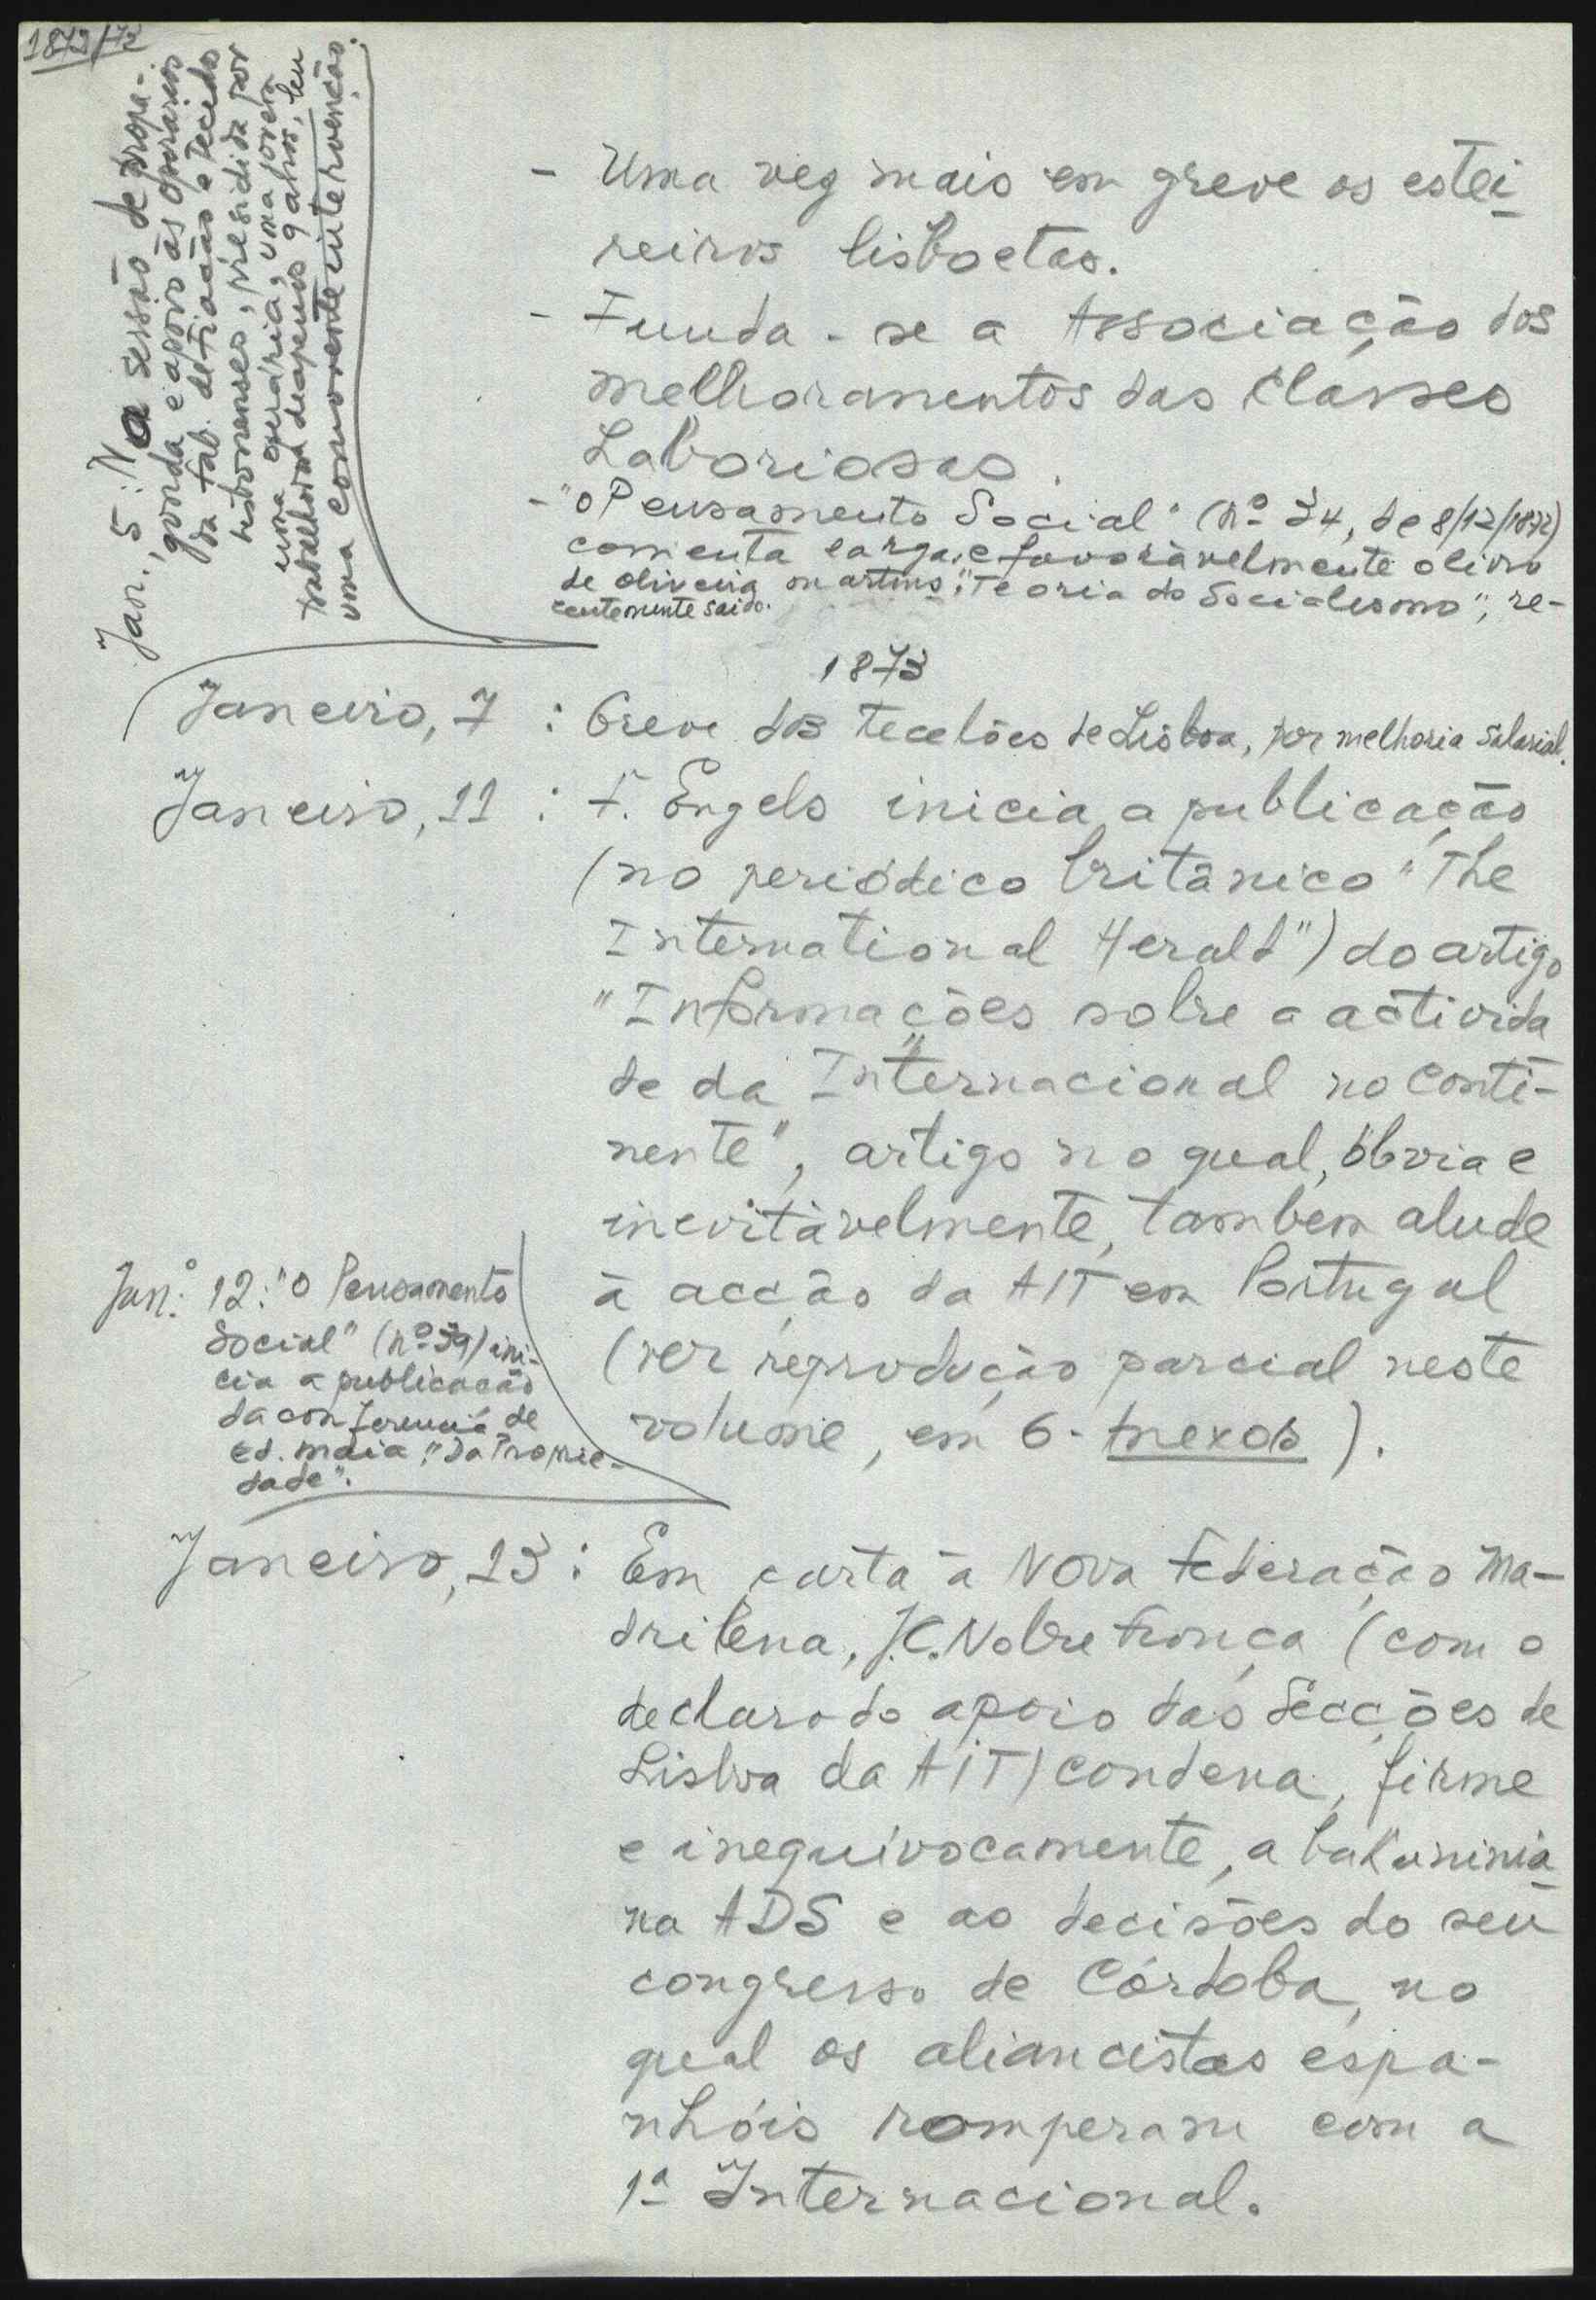 1873/72
- Uma vez mais em greve os estei-
reiros lisboetas.
- Funda-se a Associação dos
Melhoramentos das Classes
Laboriosas.
- "O Pensamento Social" (nº 34, de 8/12/1872)
comenta larga e favoràvelmente o livro
de Oliveira Martins, "Teoria do Socialismo", re-
centemente saido.
Jan., 5: Na sessão de propa-
ganda e apoio às operárias
da fáb. de fiação e tecidos
lisbonenses, presidida por
uma operária, uma jovem
trabalhora de apenas 9 anos, leu
uma comovente intervenção.
1873
Janeiro, 7 : Greve dos tecelões de Lisboa, por melhoria salarial.
Janeiro, 11 : F. Engels inicia a publicação
(no periódico britânico "The
International Herald") do artigo
"Informações sobre a activida
de da Internacional no conti-
nente", artigo no qual, óbvia e
inevitàvelmente, também alude
à acção da AIT em Portugal
(ver reprodução parcial neste
volume, em 6 - Anexos).
Jan.º 12: "O Pensamento
Social" (nº 39) ini-
cia a publicação
da conferencia de
Ed. Maia, "Da Proprie-
dade".
Janeiro, 13 : Em carta à Nova Federação Ma-
drilena, J.C. Nobre França (com o
declarado apoio das Secções de
Lisboa da AIT) condena, firme
e inequívocamente, a bakuninia
na ADS e as decisões do seu
congresso de Córdoba, no
qual os aliancistas espa-
nhóis romperam com a
1ª Internacional.